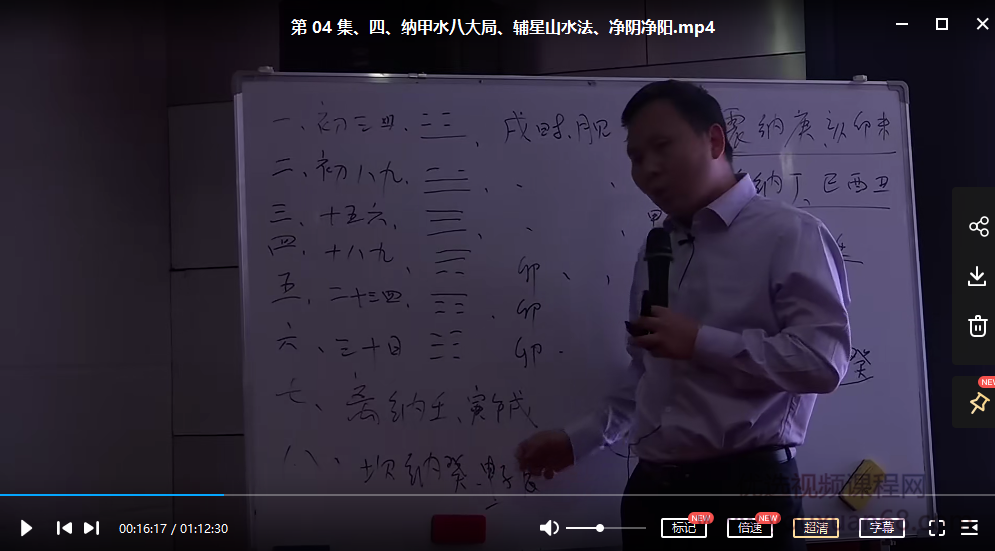 第 04 集、四、纳甲水八大局、辅星山水法、净阴净阳.mp4
一、初三四、☳、戌时昏 震纳庚亥卯未
二、初八九、☱、、、纳丁、巳酉丑
三、十五六、☰、、、甲
四、十八九、☴ 卯、、
五、二十三四、☶、卯
六、三十日 ☷ 卯、
七、离纳壬、寅戌
八、坎纳癸、申 癸
NEW
NEW
NEW
00:16:17 / 01:12:30
标记
倍速
超清
字幕
视频课程网